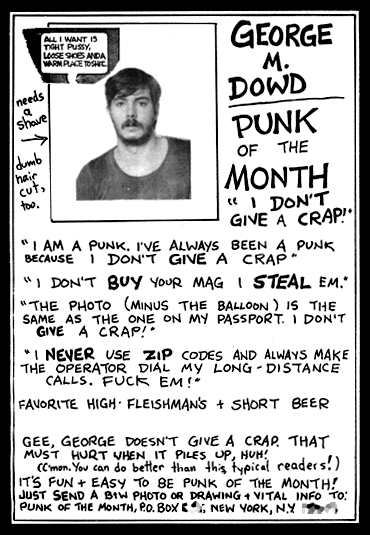 ALL I WANT IS
TIGHT PUSSY,
LOOSE SHOES AND A
WARM PLACE TO SHIT.
needs
a
shave
dumb
hair
cut,
too.
GEORGE
M.
DOWD
PUNK
OF THE
MONTH
"I DON'T
GIVE A CRAP!"
"I AM A PUNK. I'VE ALWAYS BEEN A PUNK
BECAUSE I DON'T GIVE A CRAP"
"I DON'T BUY YOUR MAG I STEAL EM."
"THE PHOTO (MINUS THE BALLOON) IS THE
SAME AS THE ONE ON MY PASSPORT. I DON'T
GIVE A CRAP!"
"I NEVER USE ZIP CODES AND ALWAYS MAKE
THE OPERATOR DIAL MY LONG-DISTANCE
CALLS. FUCK EM!"
FAVORITE HIGH- FLEISHMAN'S + SHORT BEER
GEE, GEORGE DOESN'T GIVE A CRAP. THAT
MUST HURT WHEN IT PILES UP, HUH!
(C'mon. You can do better than this, typical readers!)
IT'S FUN + EASY TO BE PUNK OF THE MONTH!
JUST SEND A B+W PHOTO OR DRAWING + VITAL INFO TO:
PUNK OF THE MONTH, P.O. BOX NEW YORK, N.Y.